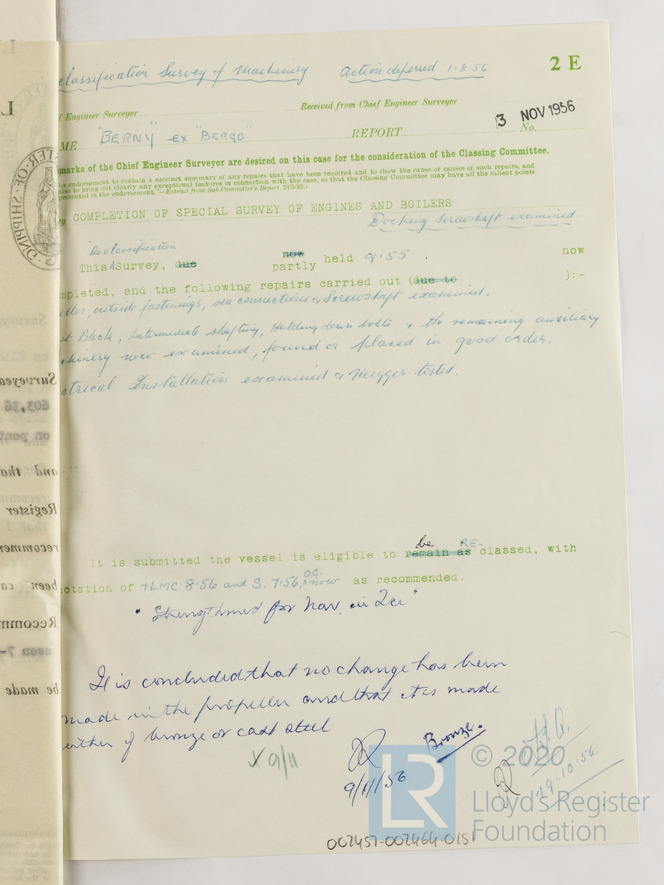 classification Survey of Machinery Action deferred 1-8-56
2 E
f Engineer Surveyor
Received from Chief Engineer Surveyor
3 NOV 1956
ME "BERNY" EX "BERGO" REPORT No.
marks of the Chief Engineer Surveyor are desired on this case for the consideration of the Classing Committee.
e endorsement to contain a succinct summary of any repairs that have been required and to show the cause or causes of such repairs, and
also to bring out clearly any exceptional features in connection with the case, so that the Classing Committee may have all the salient points
presented in the endorsement."—Extract from Sub-Committee's Report,
COMPLETION OF SPECIAL SURVEY OF ENGINES AND BOILERS
Docking Screwshaft examined.
Reclassification
This Survey, due now partly held 9.55 now
mpleted, and the following repairs carried out (due to ):-
eller, outside fastenings, sea connections & Screwshaft examined.
st Block, Intermediate shafting, Holding down bolts & the remaining auxiliary
chinery now examined, found or placed in good order.
ctrical Installation examined & Megger tested.
be RE-
It is submitted the vessel is eligible to remain as classed, with
otation of +LMC 8.56 and S. 7.56, O.G. now as recommended.
"Strengthened for Nav. in Ice"
It is concluded that no change has been
made in the propeller and that it is made
either of bronze or cast steel
Bronze.
√ 9/11
9/11/56
29.10.56.
© 2020
LR
Lloyd's Register
Foundation
002457-002464-0151
Surveyed
603,36
on pont
and that
Register
recommen
been ca
Recomm
been 7-
be made